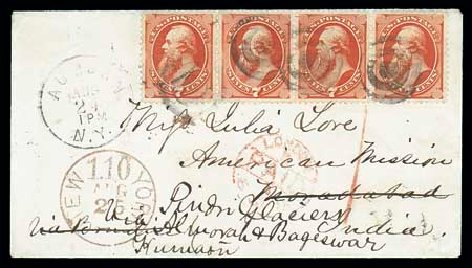 U.S. POSTAGE U.S. POSTAGE U.S. POSTAGE U.S. POSTAGE
SEVEN 7 CENTS SEVEN 7 CENTS SEVEN 7 CENTS SEVEN 7 CENTS
AUG
24
1PM
N.Y.
Miss Julia Love
American Mission
Moradabad
NEW YORK
1.10
AUG
25
LONDON
Pindri Glaciers
India
via Via Almorah & Bageswar
Kumaon